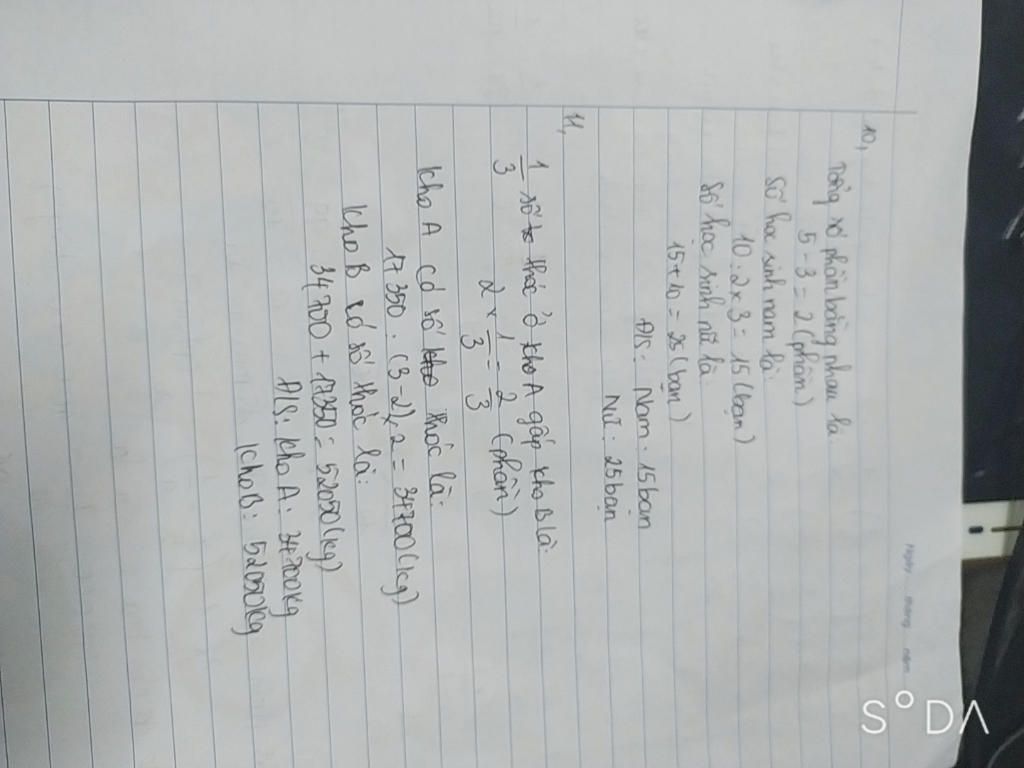 Ngày tháng năm
10,
Tổng số phần bằng nhau là
5 - 3 = 2 (phần)
Số học sinh nam là:
10 : 2 x 3 = 15 (bạn)
Số học sinh nữ là:
15 + 10 = 25 (bạn)
Đ/S: Nam: 15 bạn
Nữ: 25 bạn
11,
1/3 số thóc ở kho A gấp kho B là:
2 x 1/3 = 2/3 (phần)
Kho A có số thóc là:
17350 : (3-2) x 2 = 34700 (kg)
Kho B có số thóc là:
34700 + 17350 = 52050 (kg)
Đ/S: Kho A: 34700kg
Kho B: 52050kg
SODA